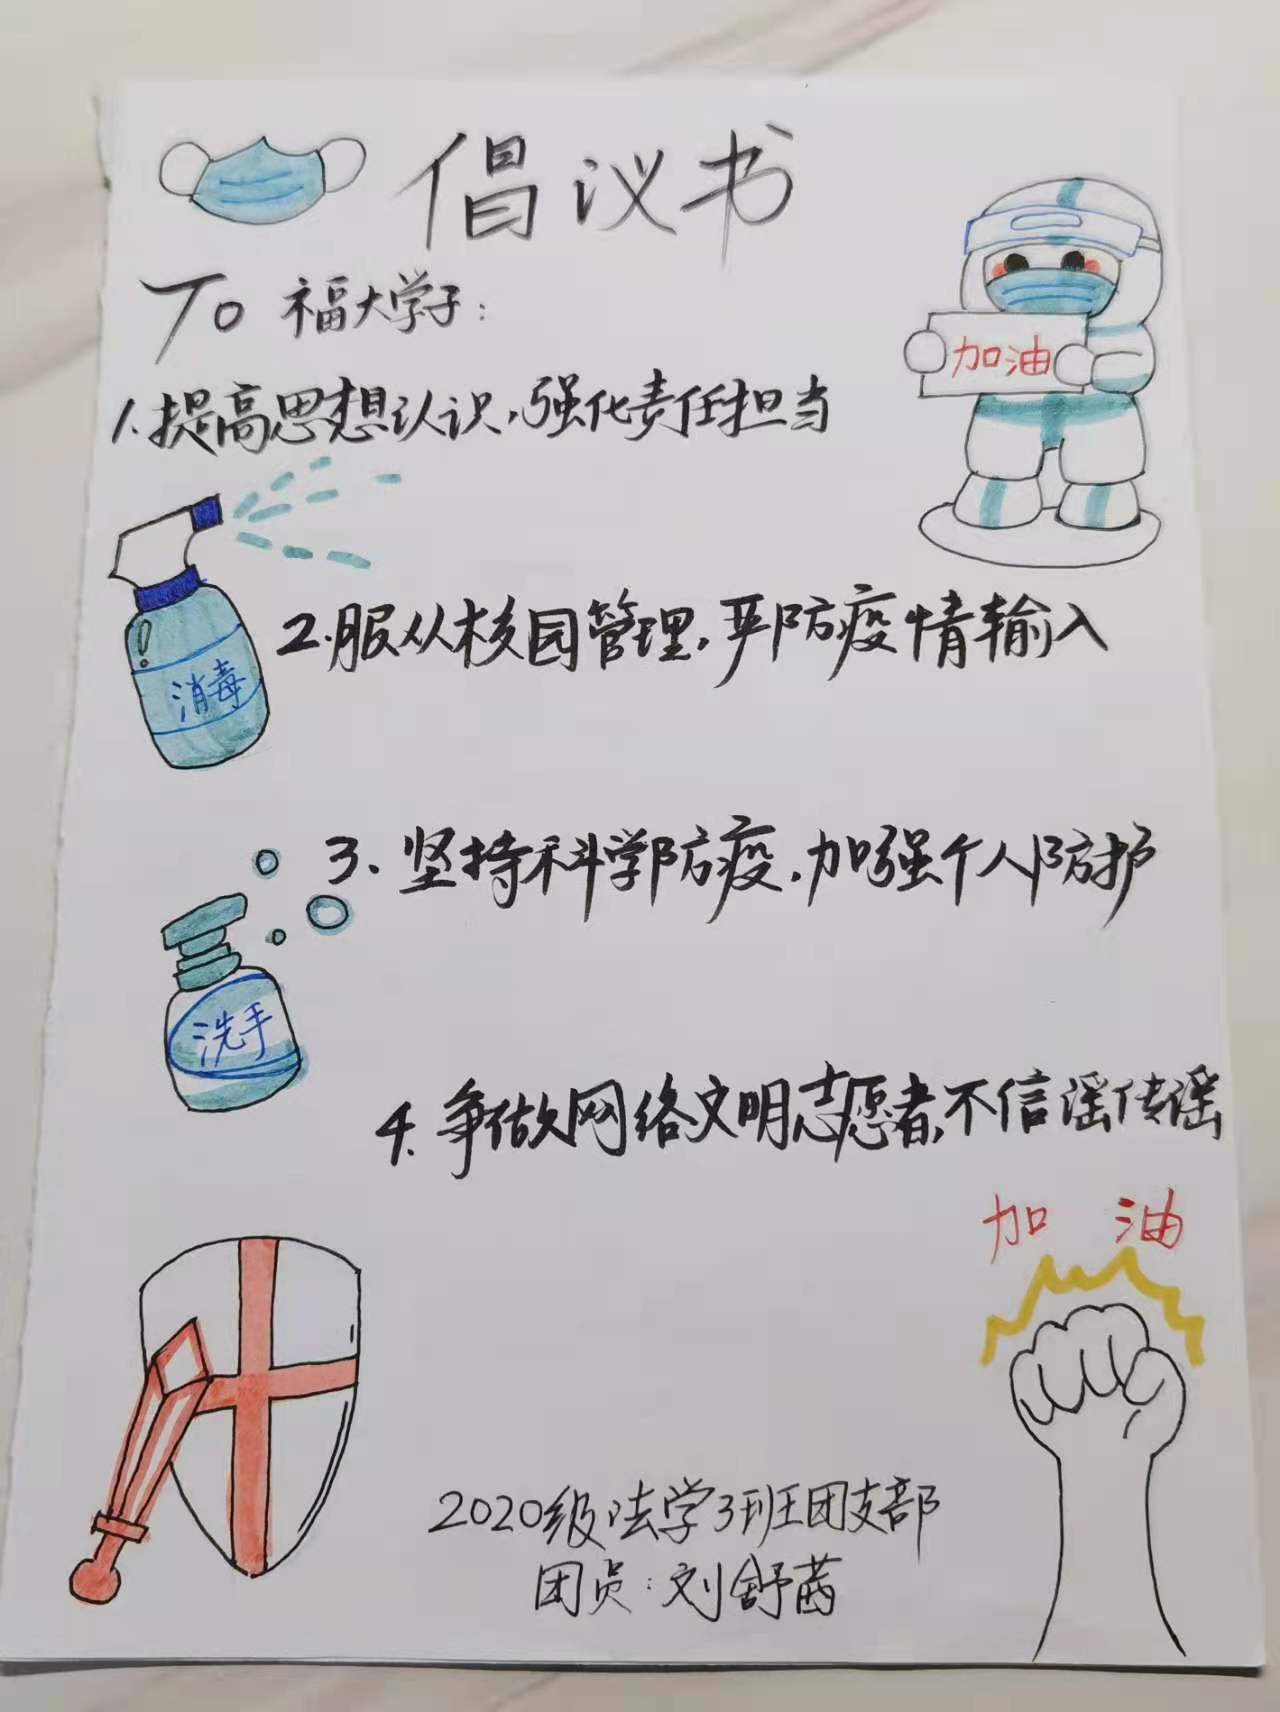 倡议书
To 福大学子：
加油
1.提高思想认识，强化责任担当
2.服从校园管理，严防疫情输入
消毒
3、坚持科学防疫，加强个人防护
洗手
4、争做网络文明志愿者，不信谣传谣
加 油
2020级法学3班团支部
团员：刘舒茜